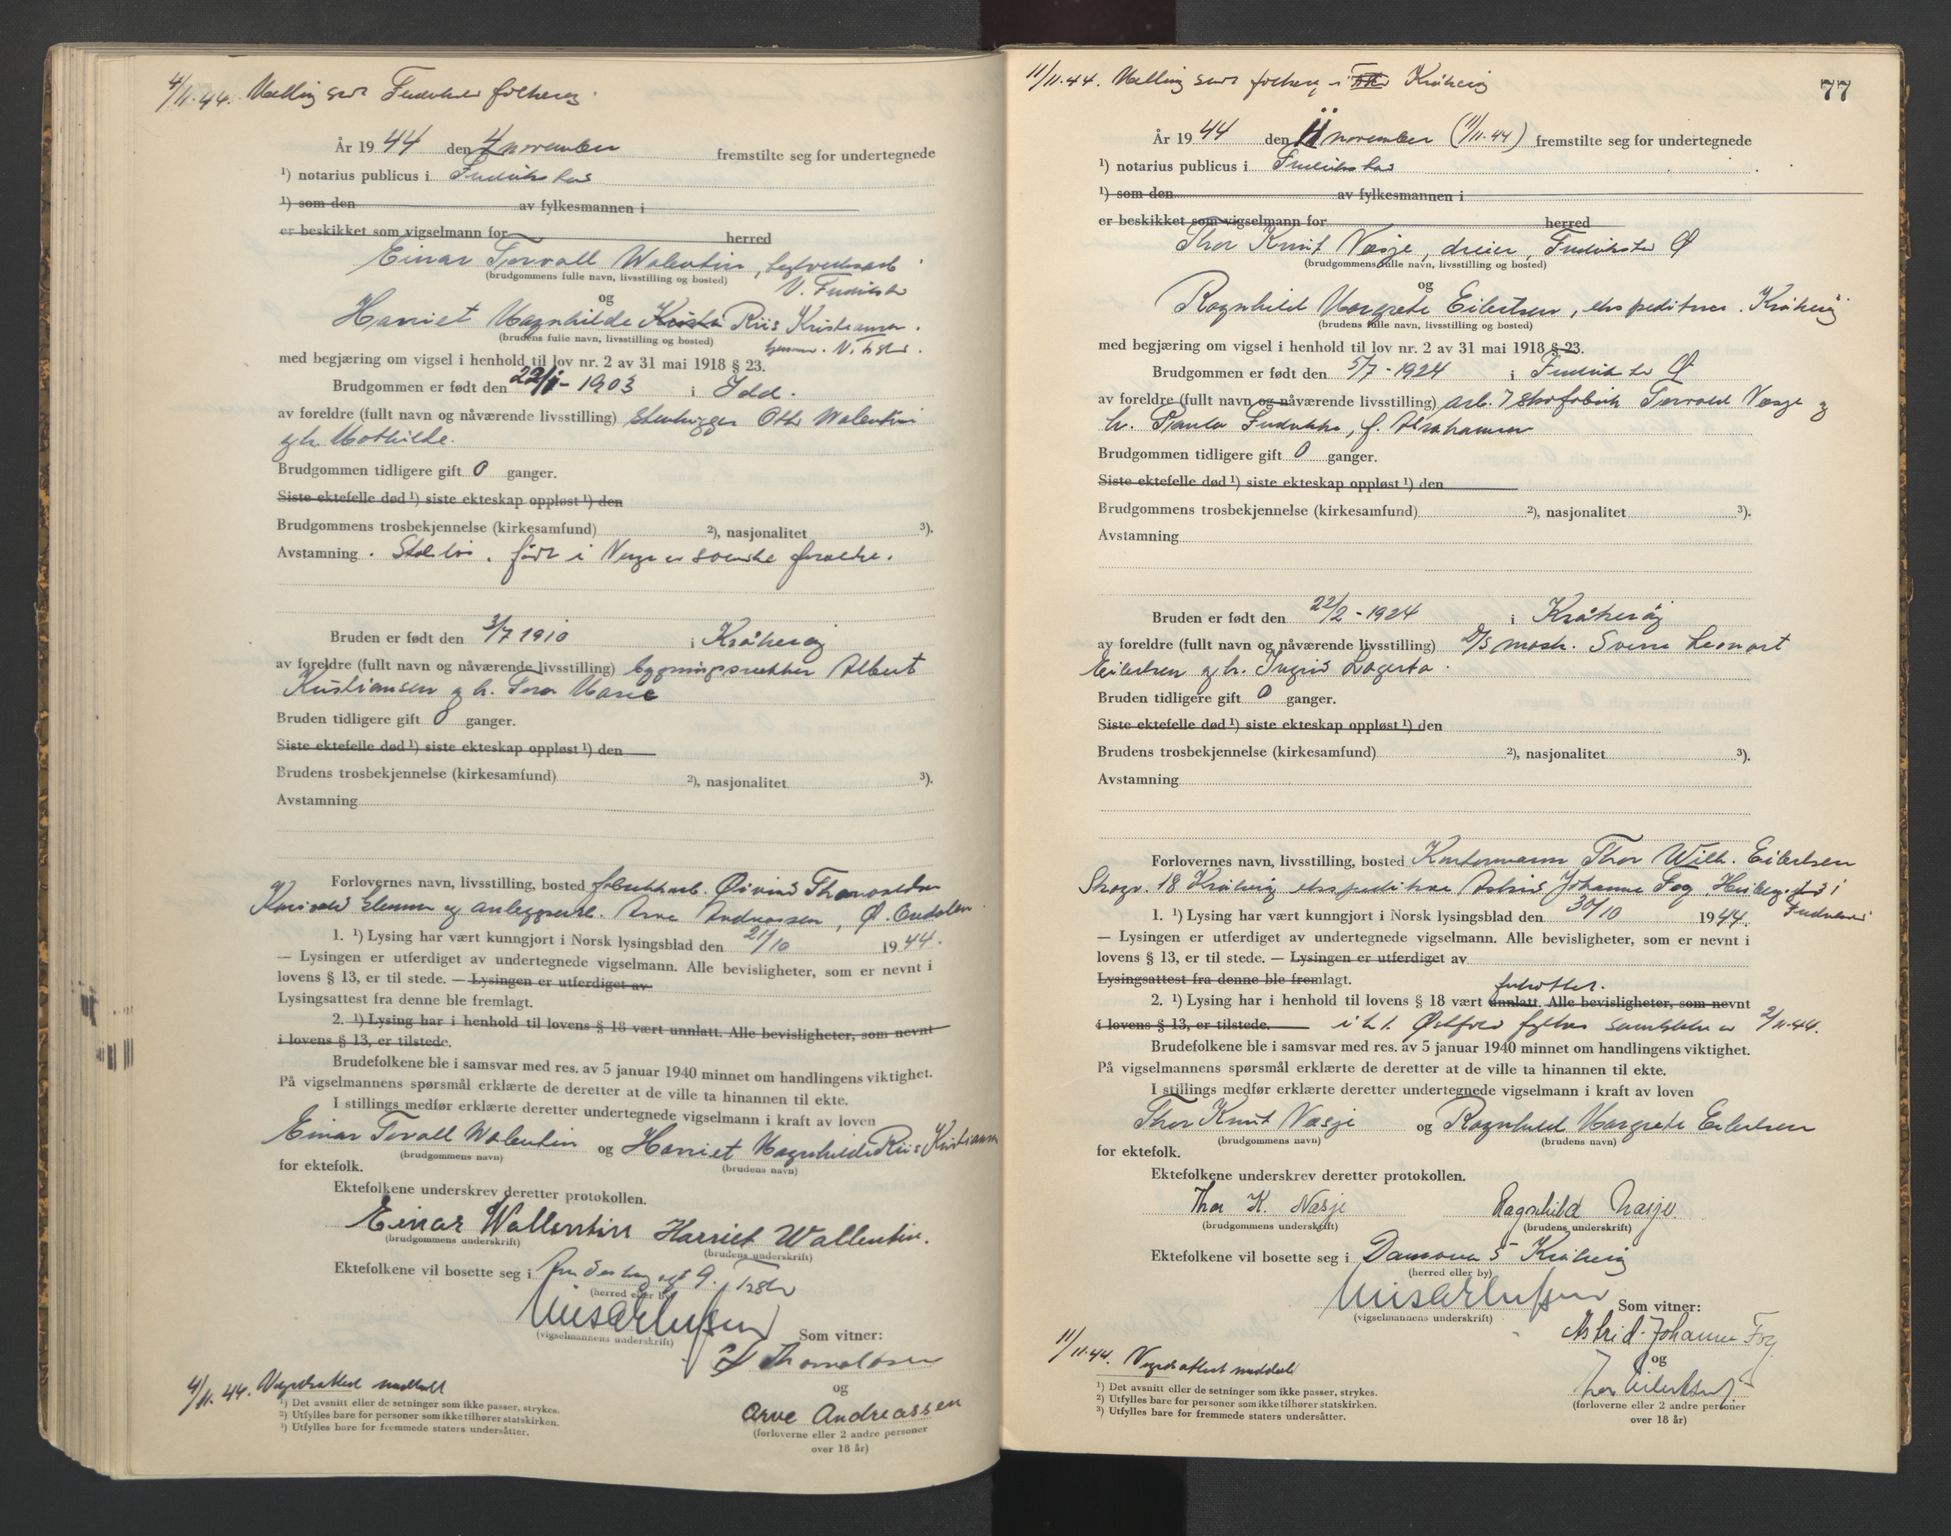 4/11.44. Melling sendt Fredrikstad folkereg.
År 1944 den 4 november fremstilte seg for undertegnede
¹) notarius publicus i Fredrikstad
¹) som den av fylkesmannen i
er beskikket som vigselmann for herred
Einar Torvall Walentin,
(brudgommens fulle navn, livsstilling og bosted)
V. Fredrikstad
og
Harriet Magnhilde Riis Kristiansen.
(brudens fulle navn, livsstilling og bosted)
med begjæring om vigsel i henhold til lov nr. 2 av 31 mai 1918 § 23.
Brudgommen er født den 22/1-1903 i Idd.
av foreldre (fullt navn og nåværende livsstilling) stenhugger Otto Walentin
og h. Mathilde.
Brudgommen tidligere gift 0 ganger.
Siste ektefelle død ¹) siste ekteskap oppløst ¹) den
Brudgommens trosbekjennelse (kirkesamfund) ²), nasjonalitet ³).
Avstamning. Statløs, født i Norge av svenske foreldre.
Bruden er født den 3/7 1910 i Kråkerøy
av foreldre (fullt navn og nåværende livsstilling) bygningssnekker Albert
Kristiansen og h. Tora Marie
Bruden tidligere gift 0 ganger.
Siste ektefelle død ¹) siste ekteskap oppløst ¹) den
Brudens trosbekjennelse (kirkesamfund) ²), nasjonalitet ³).
Avstamning
Forlovernes navn, livsstilling, bosted fabrikkarb. Øivind Thomassen
og anleggsarb. Arve Andreassen, Ø.
1. ¹) Lysing har vært kunngjort i Norsk lysingsblad den 21/10 1944.
— Lysingen er utferdiget av undertegnede vigselmann. Alle bevisligheter, som er nevnt i
lovens § 13, er til stede. — Lysingen er utferdiget av
Lysingsattest fra denne ble fremlagt.
2. ¹) Lysing har i henhold til lovens § 18 vært unnlatt. Alle bevisligheter, som nevnt
i lovens § 13, er tilstede.
Brudefolkene ble i samsvar med res. av 5 januar 1940 minnet om handlingens viktighet.
På vigselmannens spørsmål erklærte de deretter at de ville ta hinannen til ekte.
I stillings medfør erklærte deretter undertegnede vigselmann i kraft av loven
Einar Torvall Walentin og Harriet Magnhilde Riis Kristiansen
(brudgommens navn) (brudens navn)
for ektefolk.
Ektefolkene underskrev deretter protokollen.
Einar Wallentin Harriet Wallentin.
(brudgommens underskrift) (brudens underskrift)
Ektefolkene vil bosette seg i 9, Fr.stad
(herred eller by)
(vigselmannens underskrift)
Som vitner:
Ø Thomassen
og
Arve Andreassen
(forloverne eller 2 andre personer
over 18 år)
4/11.44. Vigselsattest meddelt
¹) Det avsnitt eller de setninger som ikke passer, strykes.
²) Utfylles bare for personer som ikke tilhører statskirken.
³) Utfylles bare for fremmede staters undersåtter.
11/11.44. Melling sendt folkereg. i Kråkerøy
77
År 1944 den 11 november (11/11.44) fremstilte seg for undertegnede
¹) notarius publicus i Fredrikstad
¹) som den av fylkesmannen i
er beskikket som vigselmann for herred
Thor Knut Næsje, dreier, Fredrikstad Ø
(brudgommens fulle navn, livsstilling og bosted)
og
Ragnhild Margrete Eilertsen, ekspeditrise. Kråkerøy
(brudens fulle navn, livsstilling og bosted)
med begjæring om vigsel i henhold til lov nr. 2 av 31 mai 1918 § 23.
Brudgommen er født den 5/7-1924 i Fredrikstad Ø
av foreldre (fullt navn og nåværende livsstilling) arb. i skofabrik Torvald Næsje og
h. Paula Fredrikke, f. Abrahamsen
Brudgommen tidligere gift 0 ganger.
Siste ektefelle død ¹) siste ekteskap oppløst ¹) den
Brudgommens trosbekjennelse (kirkesamfund) ²), nasjonalitet ³).
Avstamning
Bruden er født den 22/2-1924 i Kråkerøy
av foreldre (fullt navn og nåværende livsstilling) D/S mask. Sverre Leonart
Eilertsen og h. Ingrid Lagerta.
Bruden tidligere gift 0 ganger.
Siste ektefelle død ¹) siste ekteskap oppløst ¹) den
Brudens trosbekjennelse (kirkesamfund) ²), nasjonalitet ³).
Avstamning
Forlovernes navn, livsstilling, bosted Kontormann Thor Wilh. Eilertsen
18 Kråkerøy ekspeditrise Astrid Johanne Fog,
1. ¹) Lysing har vært kunngjort i Norsk lysingsblad den 30/10 1944. Fredrikstad
— Lysingen er utferdiget av undertegnede vigselmann. Alle bevisligheter, som er nevnt i
lovens § 13, er til stede. — Lysingen er utferdiget av
Lysingsattest fra denne ble fremlagt.
forkortet.
2. ¹) Lysing har i henhold til lovens § 18 vært unnlatt. Alle bevisligheter, som nevnt
i lovens § 13, er tilstede. i h.t. Østfold fylkes samtykke av 2/11.44.
Brudefolkene ble i samsvar med res. av 5 januar 1940 minnet om handlingens viktighet.
På vigselmannens spørsmål erklærte de deretter at de ville ta hinannen til ekte.
I stillings medfør erklærte deretter undertegnede vigselmann i kraft av loven
Thor Knut Næsje og Ragnhild Margrete Eilertsen
(brudgommens navn) (brudens navn)
for ektefolk.
Ektefolkene underskrev deretter protokollen.
Thor K. Næsje Ragnhild Næsje.
(brudgommens underskrift) (brudens underskrift)
Ektefolkene vil bosette seg i 5 Kråkerøy
(herred eller by)
(vigselmannens underskrift)
Som vitner:
Astrid Johanne Fog
og
Thor Eilertsen
(forloverne eller 2 andre personer
over 18 år)
11/11.44. Vigselsattest meddelt
¹) Det avsnitt eller de setninger som ikke passer, strykes.
²) Utfylles bare for personer som ikke tilhører statskirken.
³) Utfylles bare for fremmede staters undersåtter.